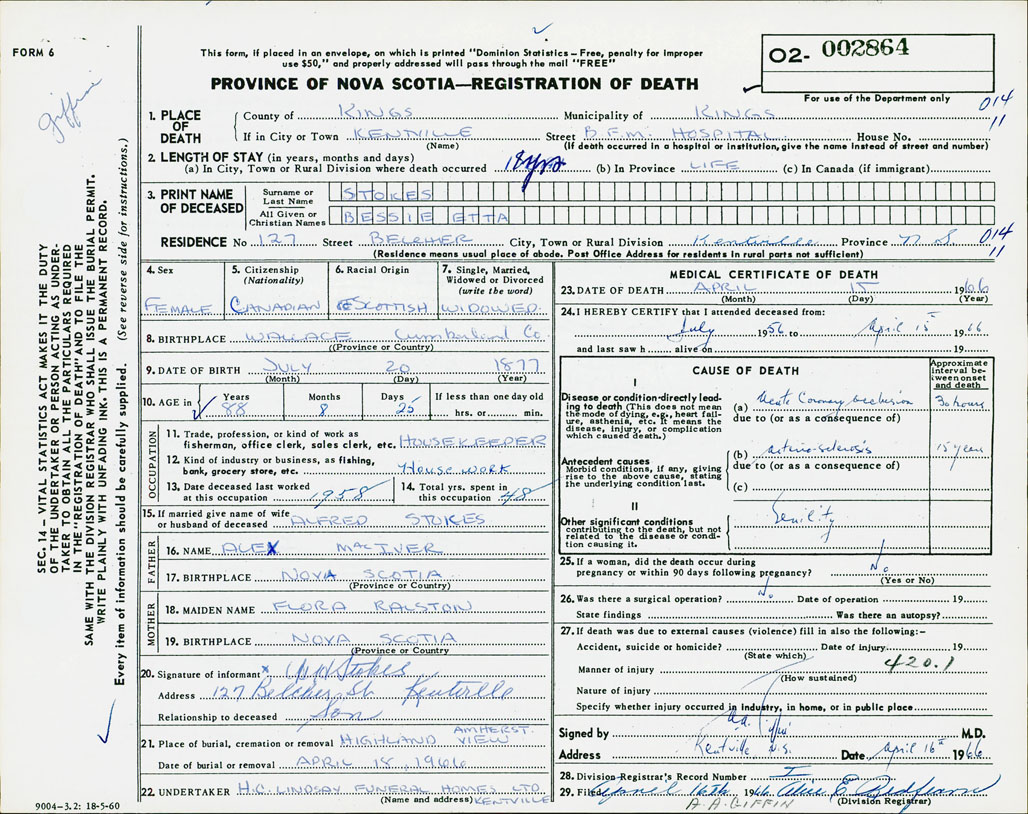 FORM 6
This form, if placed in an envelope, on which is printed "Dominion Statistics – Free, penalty for improper
use $50," and properly addressed will pass through the mail "FREE"
PROVINCE OF NOVA SCOTIA—REGISTRATION OF DEATH
02- 002864
For use of the Department only
014
11
Giffin
SEC. 14 – VITAL STATISTICS ACT MAKES IT THE DUTY
OF THE UNDERTAKER OR PERSON ACTING AS UNDER-
TAKER TO OBTAIN ALL THE PARTICULARS REQUIRED
IN THE "REGISTRATION OF DEATH" AND TO FILE THE
SAME WITH THE DIVISION REGISTRAR WHO SHALL ISSUE THE BURIAL PERMIT.
WRITE PLAINLY WITH UNFADING INK. THIS IS A PERMANENT RECORD.
Every item of information should be carefully supplied. (See reverse side for instructions.)
1. PLACE OF DEATH
County of KINGS Municipality of KINGS
If in City or Town KENTVILLE Street B.F.M. HOSPITAL House No.
(Name) (If death occurred in a hospital or institution, give the name instead of street and number)
2. LENGTH OF STAY (in years, months and days)
(a) In City, Town or Rural Division where death occurred 18 yrs (b) In Province LIFE (c) In Canada (if immigrant)
3. PRINT NAME OF DECEASED
Surname or Last Name STOKES
All Given or Christian Names BESSIE ETTA
RESIDENCE No 127 Street BELCHER City, Town or Rural Division Kentville Province N S 014
11
(Residence means usual place of abode. Post Office Address for residents in rural parts not sufficient)
4. Sex FEMALE
5. Citizenship (Nationality) CANADIAN
6. Racial Origin SCOTTISH
7. Single, Married, Widowed or Divorced (write the word) WIDOWED
8. BIRTHPLACE WALLACE Cumberland Co
(Province or Country)
9. DATE OF BIRTH JULY 20 1877
(Month) (Day) (Year)
10. AGE in Years 88 Months 8 Days 25 If less than one day old hrs. or min.
OCCUPATION
11. Trade, profession, or kind of work as
fisherman, office clerk, sales clerk, etc. HOUSEKEEPER
12. Kind of industry or business, as fishing,
bank, grocery store, etc. HOUSE WORK
13. Date deceased last worked at this occupation 1958
14. Total yrs. spent in this occupation 48
15. If married give name of wife
or husband of deceased ALFRED STOKES
FATHER
16. NAME ALEX MacIVER
17. BIRTHPLACE NOVA SCOTIA
(Province or Country)
MOTHER
18. MAIDEN NAME FLORA RALSTON
19. BIRTHPLACE NOVA SCOTIA
(Province or Country)
20. Signature of informant x Stokes
Address 127 Belcher St Kentville
Relationship to deceased Son
21. Place of burial, cremation or removal HIGHLAND VIEW AMHERST
Date of burial or removal APRIL 18, 1966
22. UNDERTAKER H.C. LINDSAY FUNERAL HOMES LTD
(Name and address) KENTVILLE
9004-3.2: 18-5-60
MEDICAL CERTIFICATE OF DEATH
23. DATE OF DEATH APRIL 15 1966
(Month) (Day) (Year)
24. I HEREBY CERTIFY that I attended deceased from:
July 1956 to April 15 1966
and last saw h alive on 19
CAUSE OF DEATH
Approximate interval between onset and death
I
Disease or condition directly leading to death (This does not mean the mode of dying, e.g., heart failure, asthenia, etc. It means the disease, injury, or complication which caused death.)
(a) Acute Coronary occlusion 30 hours
due to (or as a consequence of)
Antecedent causes
Morbid conditions, if any, giving rise to the above cause, stating the underlying condition last.
(b) arterio-sclerosis 15 years
due to (or as a consequence of)
(c)
II
Other significant conditions
contributing to the death, but not related to the disease or condition causing it.
Senility
25. If a woman, did the death occur during
pregnancy or within 90 days following pregnancy? No
(Yes or No)
26. Was there a surgical operation? No Date of operation 19
State findings Was there an autopsy?
27. If death was due to external causes (violence) fill in also the following:–
Accident, suicide or homicide? Date of injury 19
(State which) 420.1
Manner of injury
(How sustained)
Nature of injury
Specify whether injury occurred in industry, in home, or in public place
Signed by A.A. Giffin M.D.
Address Kentville N.S. Date April 16th 1966
28. Division Registrar's Record Number
29. Filed April 16th 1966 Alice E Redfearn
A. A. GIFFIN (Division Registrar)